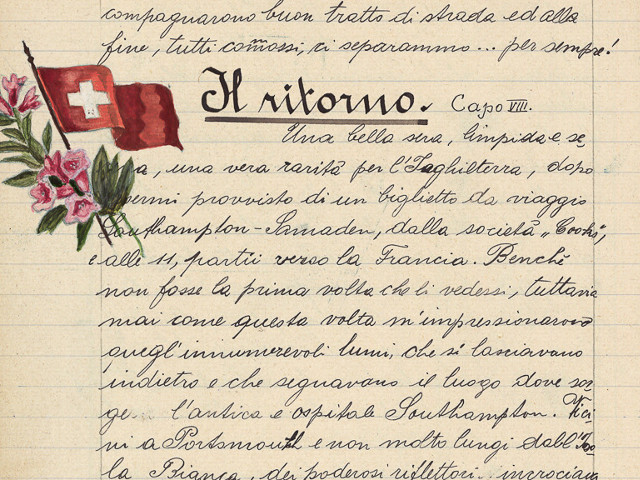 compagnarono buon tratto di strada ed alla
fine, tutti commossi, ci separammo... per sempre!
Il ritorno. Capo VIII.
Una bella sera, limpida e se
a, una vera rarità per l'Inghilterra, dopo
vermi provvisto di un biglietto da viaggio
Southampton-Samaden, dalla società „Cooks",
e alle 11, partii verso la Francia. Benchè
non fosse la prima volta che li vedessi, tuttavia
mai come questa volta m'impressionarono
quegl'innumerevoli lumi, che si lasciavano
indietro e che segnavano il luogo dove sor
ge l'antica e ospitale Southampton. Vici
ni a Portsmouth e non molto lungi dall'Iso
la Bianca, dei poderosi riflettori incrociava